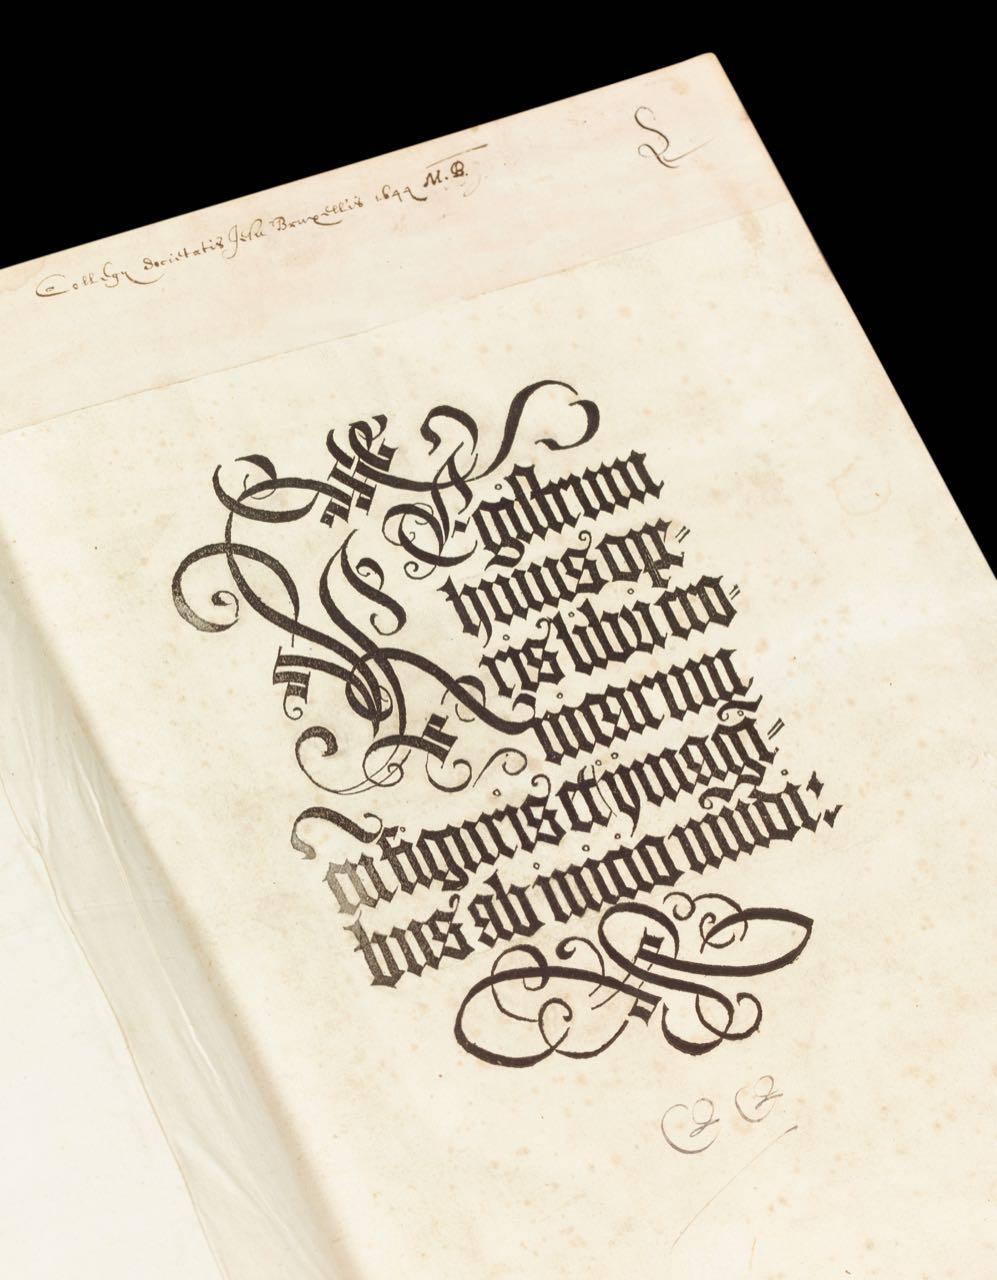 Collegij Societatis Jesu Bruxellis 1644 M.B.
L
REgistrum
huius ope-
ris libri cro-
nicarum
cũ figuris et ymagĩ-
bus ab inicio mũdi: